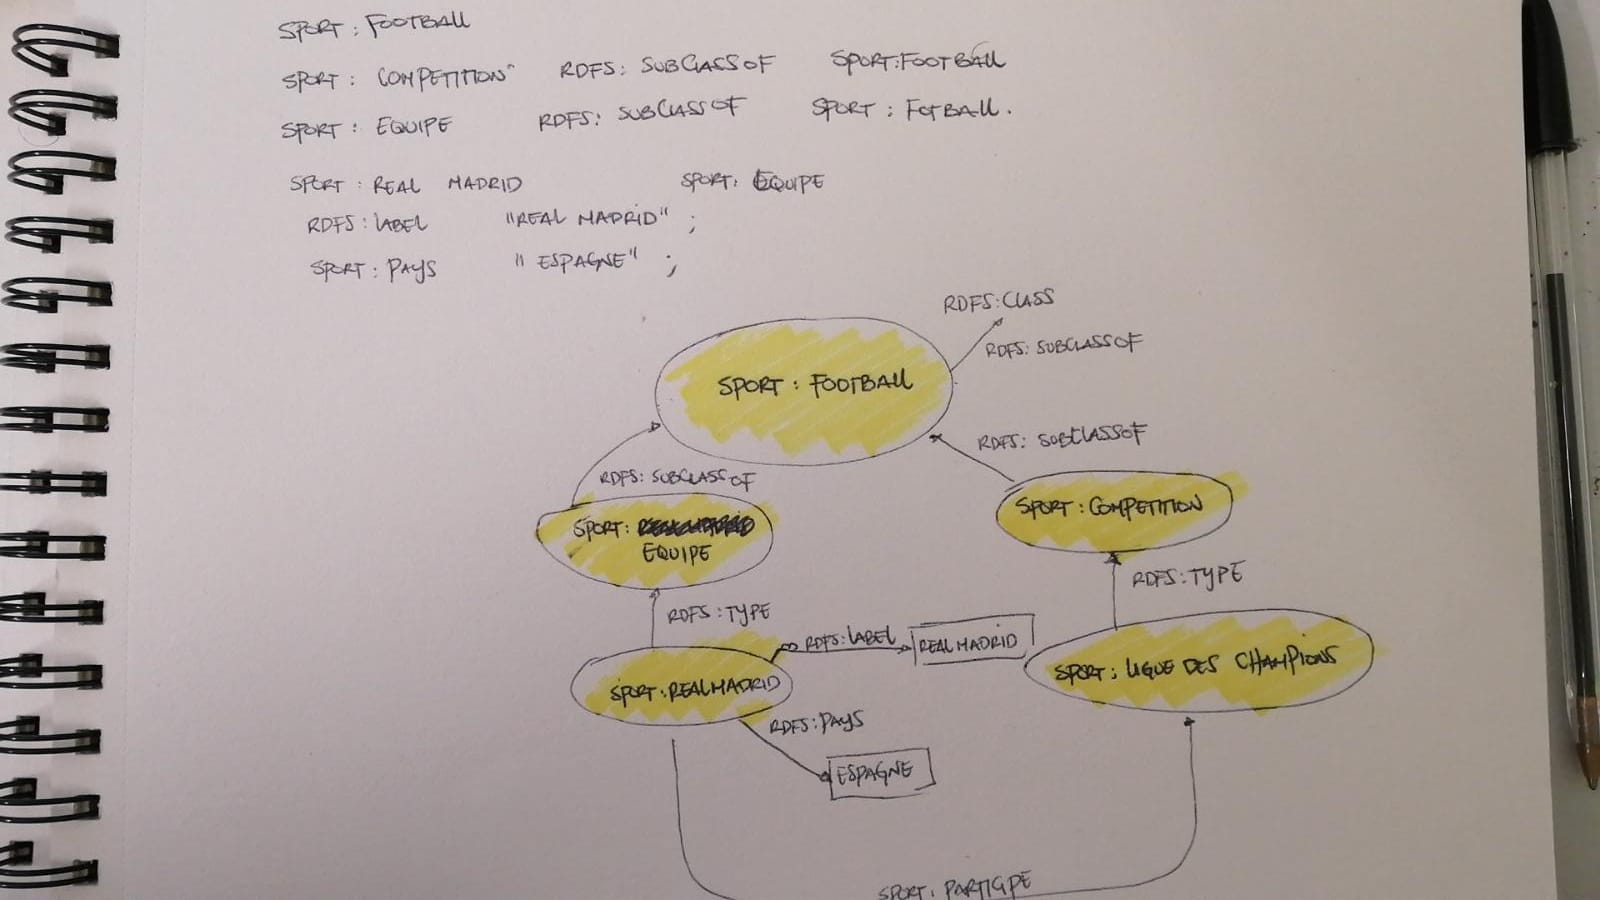 SPORT : FOOTBALL
SPORT : COMPETITION" RDFS: SUBCLASSOF SPORT:FOOTBALL
SPORT : EQUIPE RDFS: SUBCLASSOF SPORT : FOTBALL.
SPORT : REAL MADRID SPORT: EQUIPE
RDFS : LABEL "REAL MADRID" ;
SPORT : PAYS "ESPAGNE" ;
RDFS:CLASS
RDFS: SUBCLASSOF
SPORT : FOOTBALL
RDFS: SUBCLASSOF
RDFS: SUBCLASSOF
SPORT : COMPETITION
SPORT :
EQUIPE
RDFS:TYPE
RDFS :TYPE
RDFS:LABEL REALMADRID
SPORT : LIGUE DES CHAMPIONS
SPORT:REALMADRID
RDFS:PAYS
ESPAGNE
SPORT: PARTICIPE